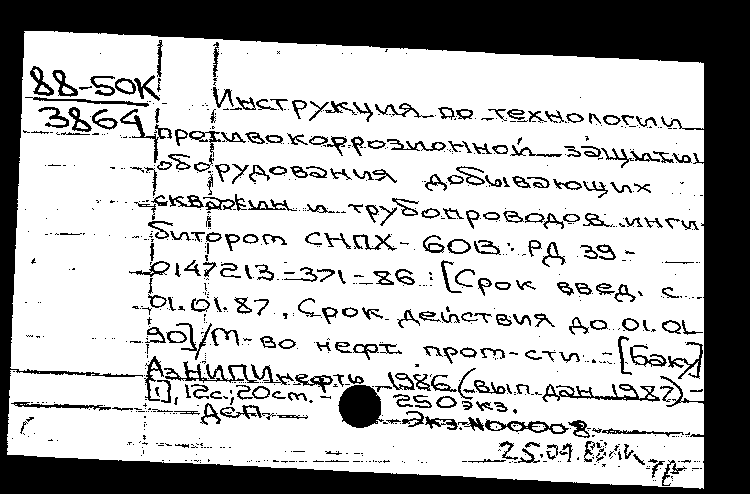 88-50К
3864
Инструкция по технологии
противокоррозионной защиты
оборудования добывающих
скважин и трубопроводов инги-
битором СНПХ-6013: РД 39-
0147213-371-86: [Срок введ. с
01.01.87, Срок действия до 01.01
90]/М-во нефт. пром-сти. - [Баку]
АзНИПИнефть, 1986 (вып. дан. 1987). -
[1], 12с.; 20см. -
250экз.
Деп.
Экз. N00008
25.04.88